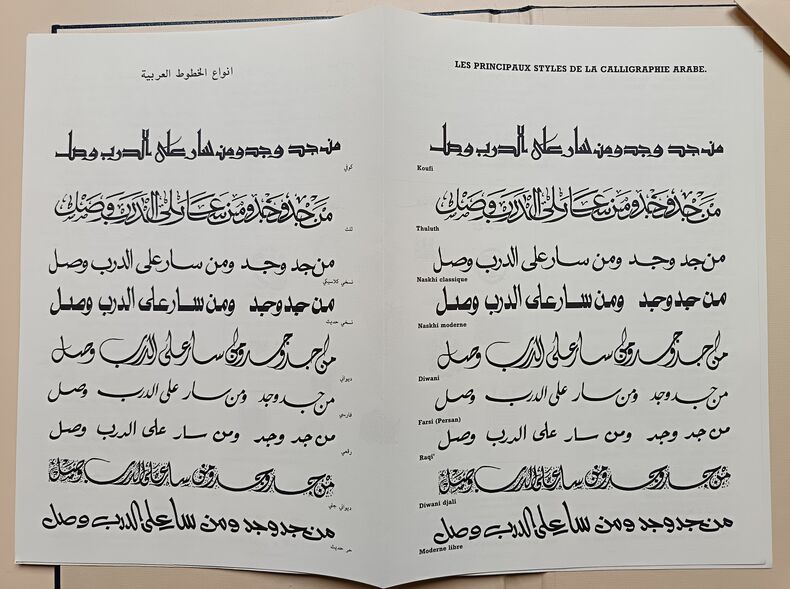 انواع الخطوط العربية
من جد وجد ومن سار على الدرب وصل
كوفي
من جد وجد ومن سار على الدرب وصل
ثلث
من جد وجد ومن سار على الدرب وصل
نسخي كلاسيكي
من جد وجد ومن سار على الدرب وصل
نسخي حديث
من جد وجد ومن سار على الدرب وصل
ديواني
من جد وجد ومن سار على الدرب وصل
فارسي
من جد وجد ومن سار على الدرب وصل
رقعي
من جد وجد ومن سار على الدرب وصل
ديواني جلي
من جد وجد ومن سار على الدرب وصل
حر حديث
LES PRINCIPAUX STYLES DE LA CALLIGRAPHIE ARABE.
من جد وجد ومن سار على الدرب وصل
Koufi
من جد وجد ومن سار على الدرب وصل
Thuluth
من جد وجد ومن سار على الدرب وصل
Naskhi classique
من جد وجد ومن سار على الدرب وصل
Naskhi moderne
من جد وجد ومن سار على الدرب وصل
Diwani
من جد وجد ومن سار على الدرب وصل
Farsi (Persan)
من جد وجد ومن سار على الدرب وصل
Raqi'
من جد وجد ومن سار على الدرب وصل
Diwani djali
من جد وجد ومن سار على الدرب وصل
Moderne libre